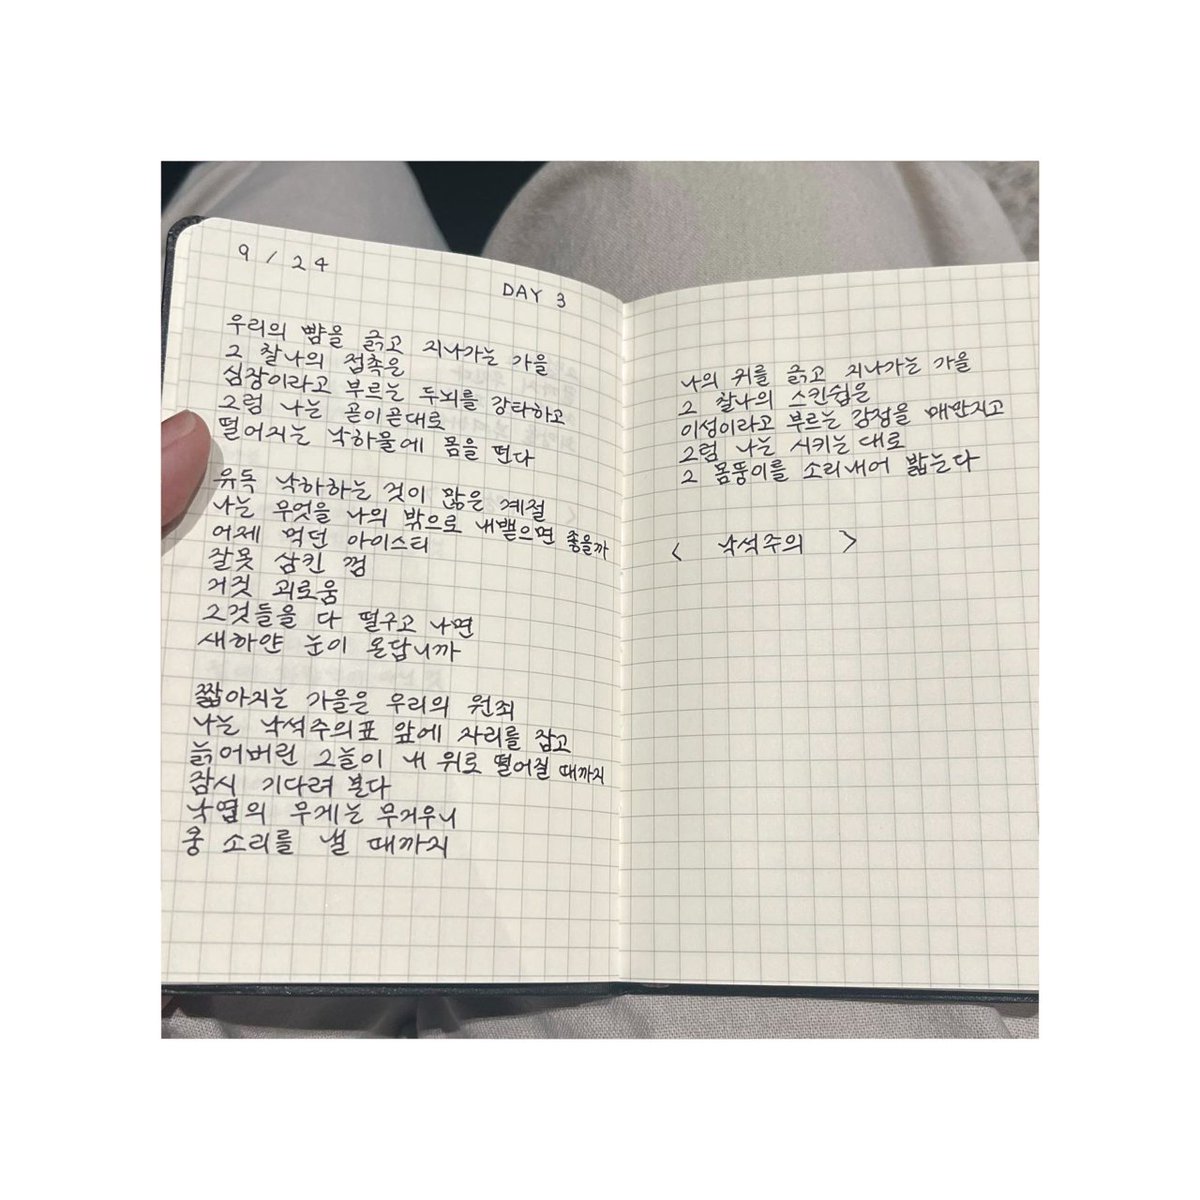 9 / 24
DAY 3
우리의 뺨을 긁고 지나가는 가을
그 찰나의 접촉은
심장이라고 부르는 두뇌를 강타하고
그럼 나는 곧이곧대로
떨어지는 낙하물에 몸을 떤다
유독 낙하하는 것이 많은 계절
나는 무엇을 나의 밖으로 내뱉으면 좋을까
어제 먹던 아이스티
잘못 삼킨 껌
거짓 괴로움
그것들을 다 떨구고 나면
새하얀 눈이 온답니까
짧아지는 가을은 우리의 원죄
나는 낙석주의표 앞에 자리를 잡고
늙어버린 그늘이 내 위로 떨어질 때까지
잠시 기다려 본다
낙엽의 무게는 무거우니
쿵 소리를 낼 때까지
나의 귀를 긁고 지나가는 가을
그 찰나의 스킨쉽은
이성이라고 부르는 감정을 매만지고
그럼 나는 시키는대로
그 몸뚱이를 소리내어 밟는다
< 낙석주의 >